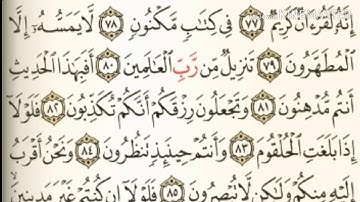 إِنَّهُۥ لَقُرْءَانٌ كَرِيمٌ ٧٧ فِى كِتَٰبٍ مَّكْنُونٍ ٧٨ لَّا يَمَسُّهُۥٓ إِلَّا
ٱلْمُطَهَّرُونَ ٧٩ تَنزِيلٌ مِّن رَّبِّ ٱلْعَٰلَمِينَ ٨٠ أَفَبِهَٰذَا ٱلْحَدِيثِ
أَنتُم مُّدْهِنُونَ ٨١ وَتَجْعَلُونَ رِزْقَكُمْ أَنَّكُمْ تُكَذِّبُونَ ٨٢ فَلَوْلَآ
إِذَا بَلَغَتِ ٱلْحُلْقُومَ ٨٣ وَأَنتُمْ حِينَئِذٍ تَنظُرُونَ ٨٤ وَنَحْنُ أَقْرَبُ
إِلَيْهِ مِنكُمْ وَلَٰكِن لَّا تُبْصِرُونَ ٨٥ فَلَوْلَآ إِن كُنتُمْ غَيْرَ مَدِينِينَ